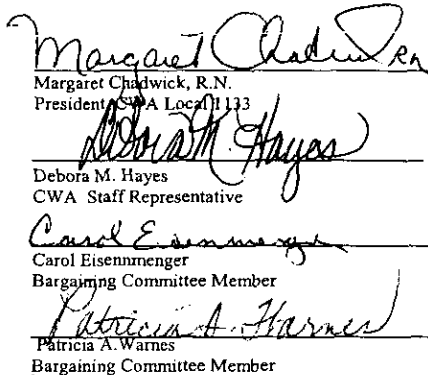 Margaret Chadwick RN
Margaret Chadwick, R.N.
President, CWA Local 1133
Debora M. Hayes
Debora M. Hayes
CWA Staff Representative
Carol Eisenmenger
Carol Eisennmenger
Bargaining Committee Member
Patricia A. Warnes
Patricia A. Warnes
Bargaining Committee Member